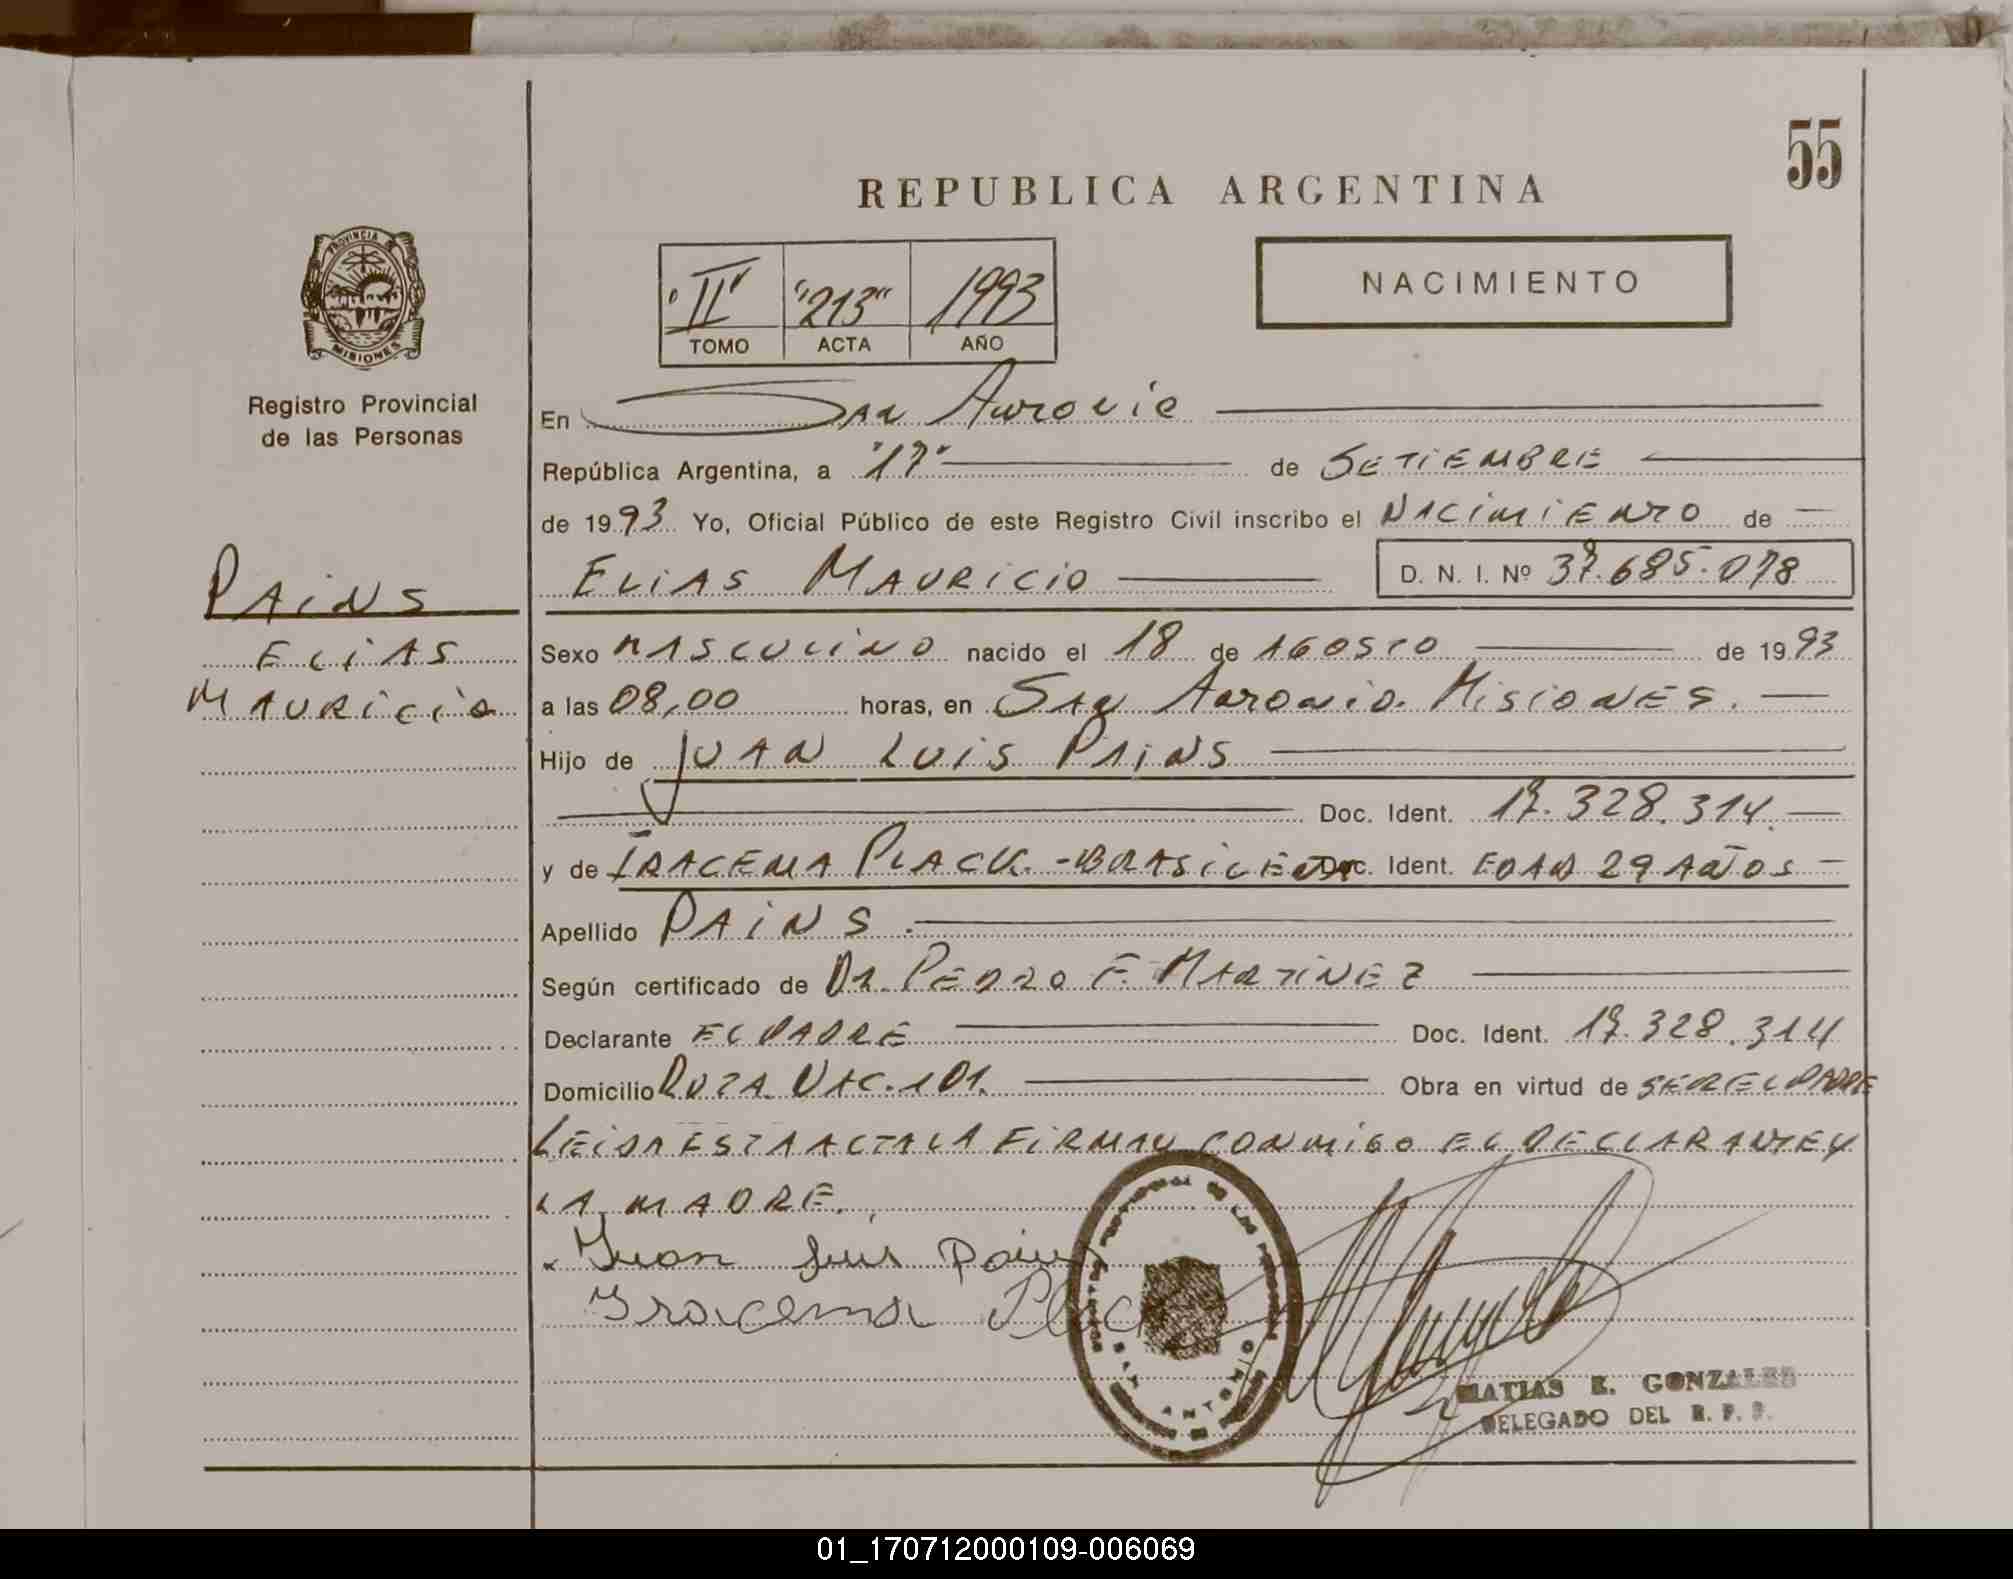 55
REPUBLICA ARGENTINA
PROVINCIA
MISIONES
Registro Provincial
de las Personas
"II" "213" 1993
TOMO ACTA AÑO
NACIMIENTO
En San Antonio
República Argentina, a "17" de SETIEMBRE
de 1993 Yo, Oficial Público de este Registro Civil inscribo el NACIMIENTO de
ELIAS MAURICIO D. N. I. Nº 37.685.078
PAINS
ELIAS
MAURICIO
Sexo MASCULINO nacido el 18 de AGOSTO de 1993
a las 08,00 horas, en SAN ANTONIO. MISIONES.
Hijo de JUAN LUIS PAINS
Doc. Ident. 17.328.314.
y de IRACEMA PLACK.-BRASILENA Doc. Ident. EDAD 29 AÑOS
Apellido PAINS.
Según certificado de DR. PEDRO F. MARTINEZ
Declarante EL PADRE Doc. Ident. 17.328.314
Domicilio RUTA NAC. 101. Obra en virtud de SER EL PADRE
LEIDA ESTA ACTA LA FIRMAN CONMIGO EL DECLARANTE Y
LA MADRE.
Juan Luis Pains
Iracema Plac
SAN ANTONIO
MATIAS E. GONZALES
DELEGADO DEL R. P. P.
01_170712000109-006069